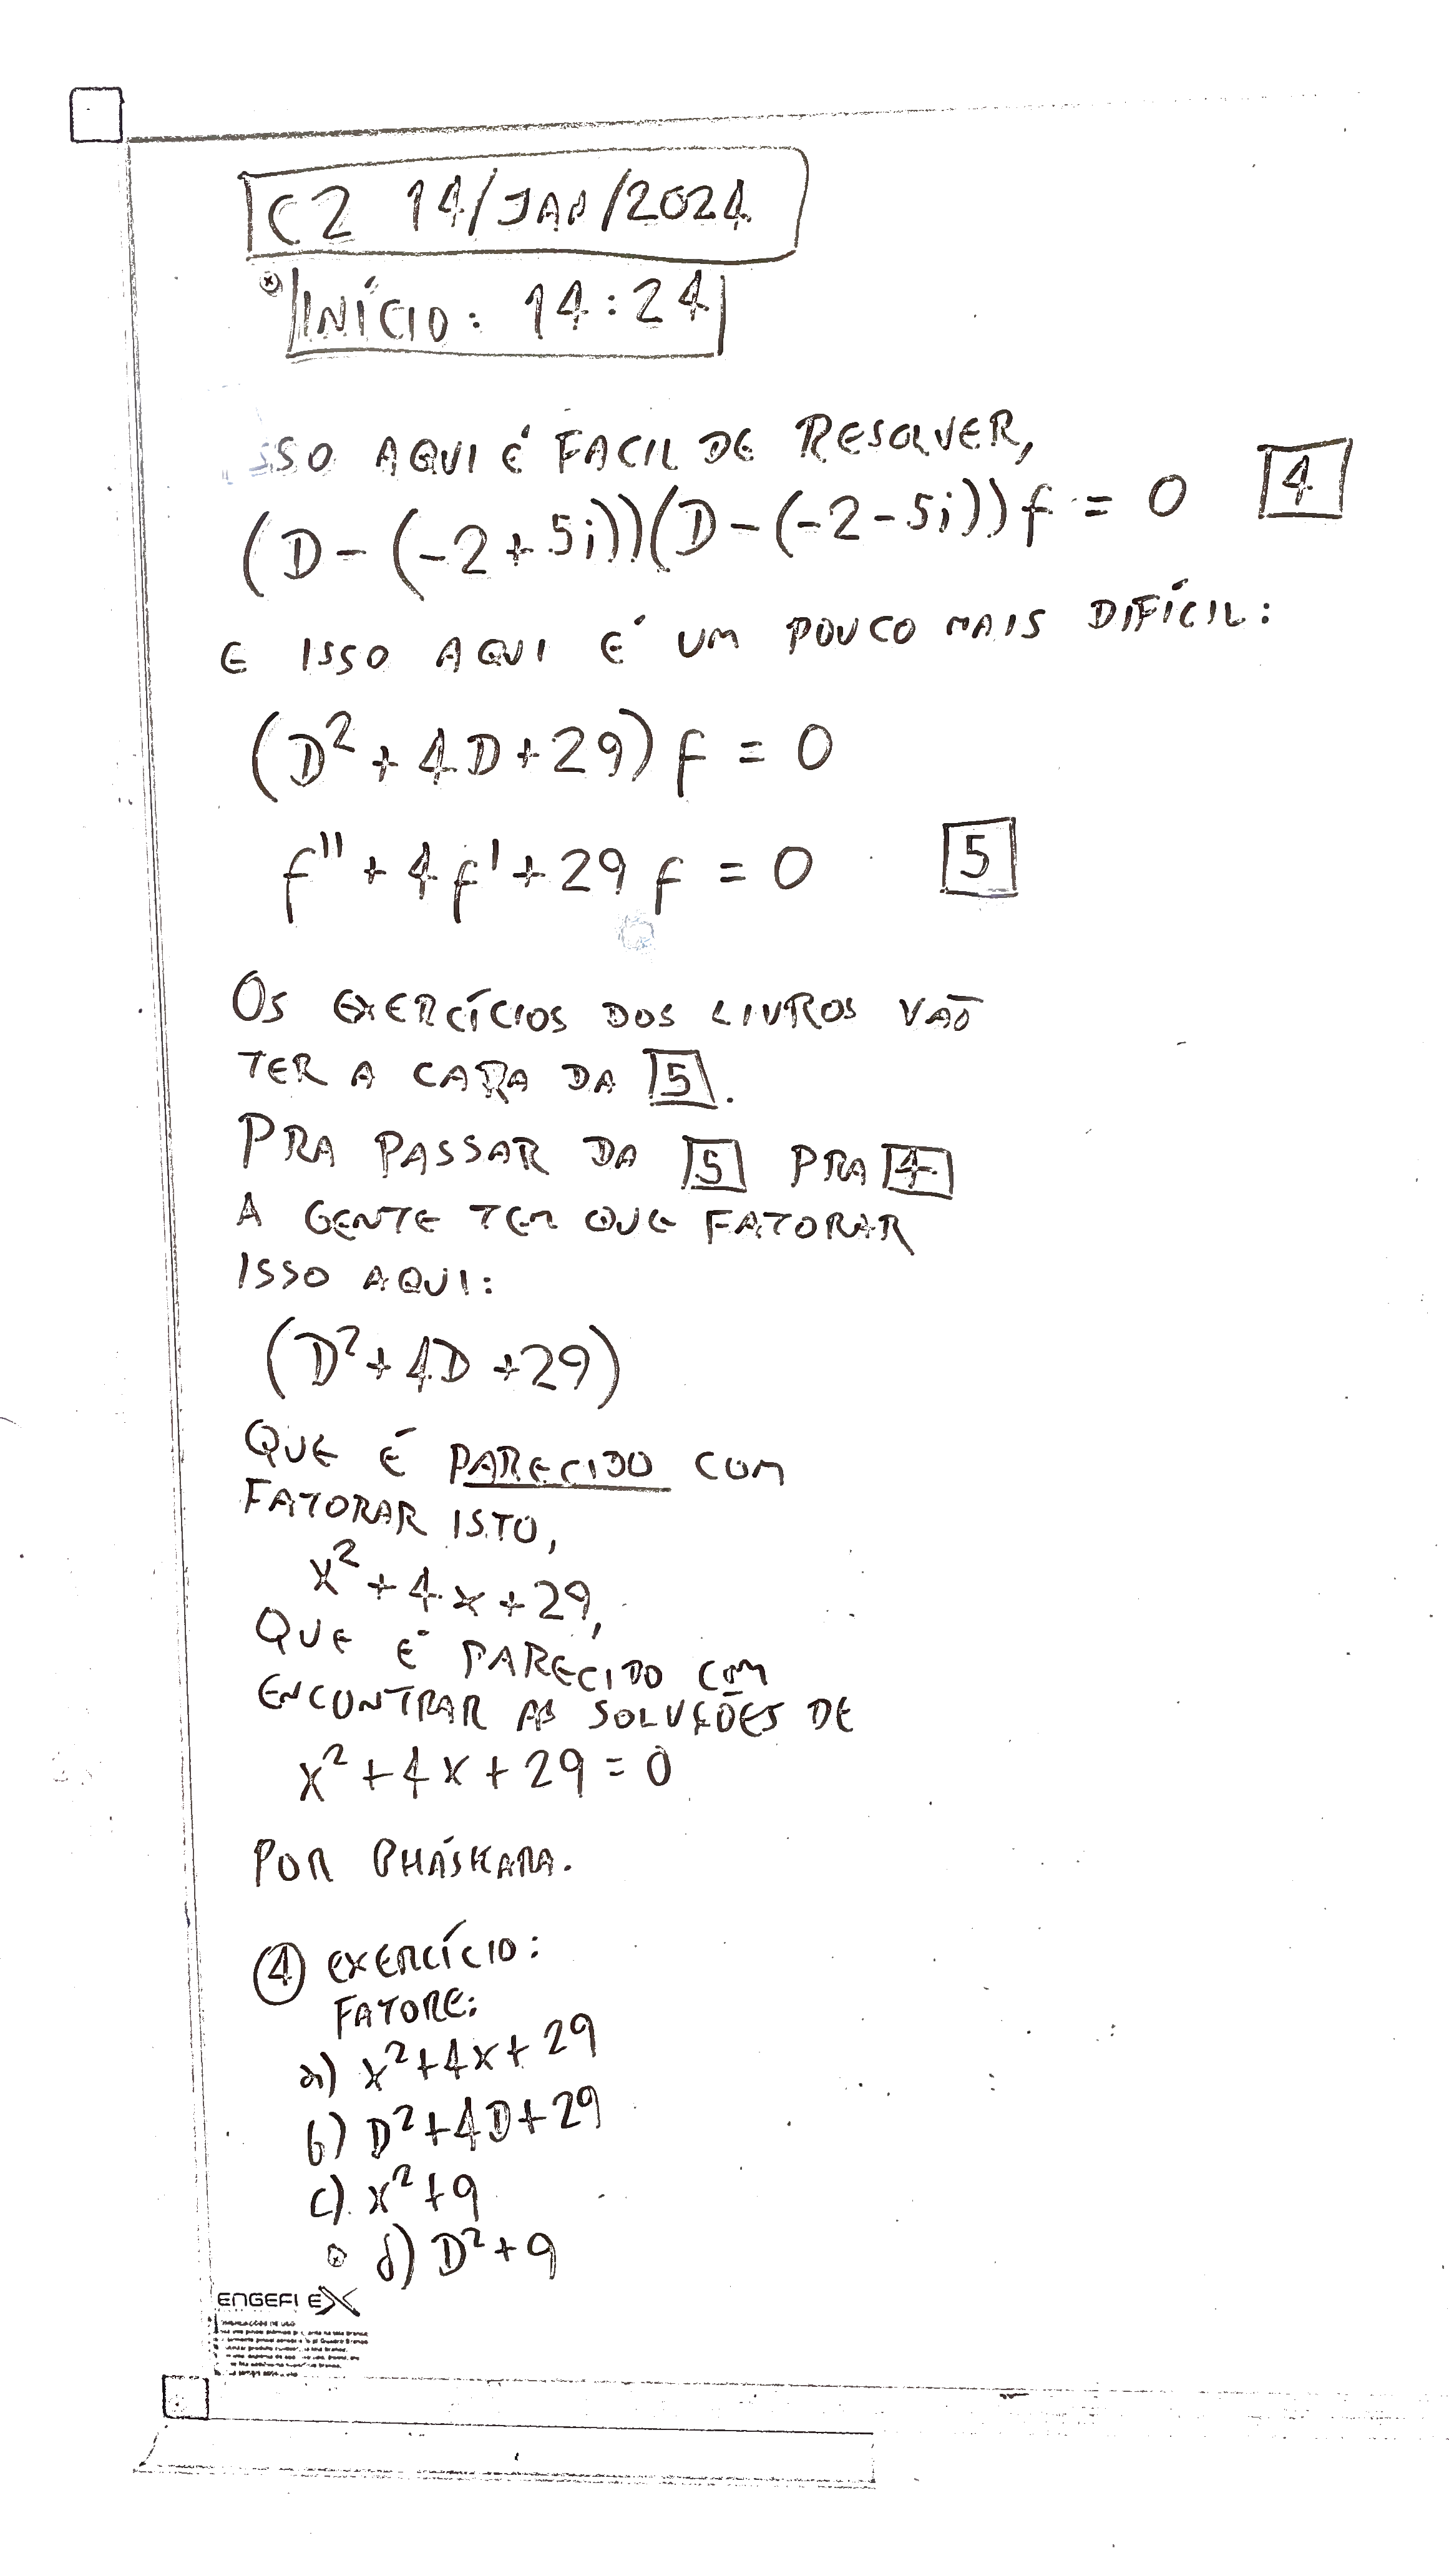 C2 14/JAN/2024
INÍCIO: 14:24
ISSO AQUI É FACIL DE RESOLVER,
(D-(-2+5i))(D-(-2-5i))f = 0 [4]
E ISSO AQUI É UM POUCO MAIS DIFÍCIL:
(D²+4D+29)f = 0
f''+4f'+29f = 0 [5]
OS EXERCÍCIOS DOS LIVROS VÃO
TER A CARA DA [5].
PRA PASSAR DA [5] PRA [4]
A GENTE TEM QUE FATORAR
ISSO AQUI:
(D²+4D+29)
QUE É PARECIDO COM
FATORAR ISTO,
x²+4x+29,
QUE É PARECIDO COM
ENCONTRAR AS SOLUÇÕES DE
x²+4x+29=0
POR BHÁSKARA.
④ EXERCÍCIO:
FATORE:
a) x²+4x+29
b) D²+4D+29
c) x²+9
d) D²+9
ENGEFLEX